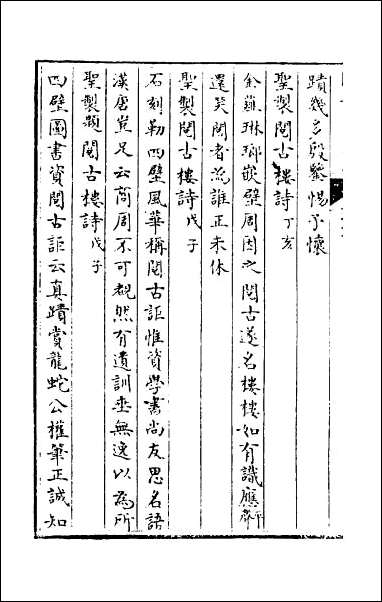 蹟幾多殷鑒惕予懷
聖製閱古樓詩丁亥
金薤琳瑯嵌壁周因之閱古遂名樓樓如有識應
還笑閱者流誰正未休
聖製閱古樓詩戊子
石刻勒四壁風華稱閱古詎惟資學書尚友思名語
漢唐豈足云商周不可覩然有遺訓垂無逸以為所
聖製題閱古樓詩戊子
四壁圖書資閱古詎云真蹟賞龍蛇公權筆正誠知